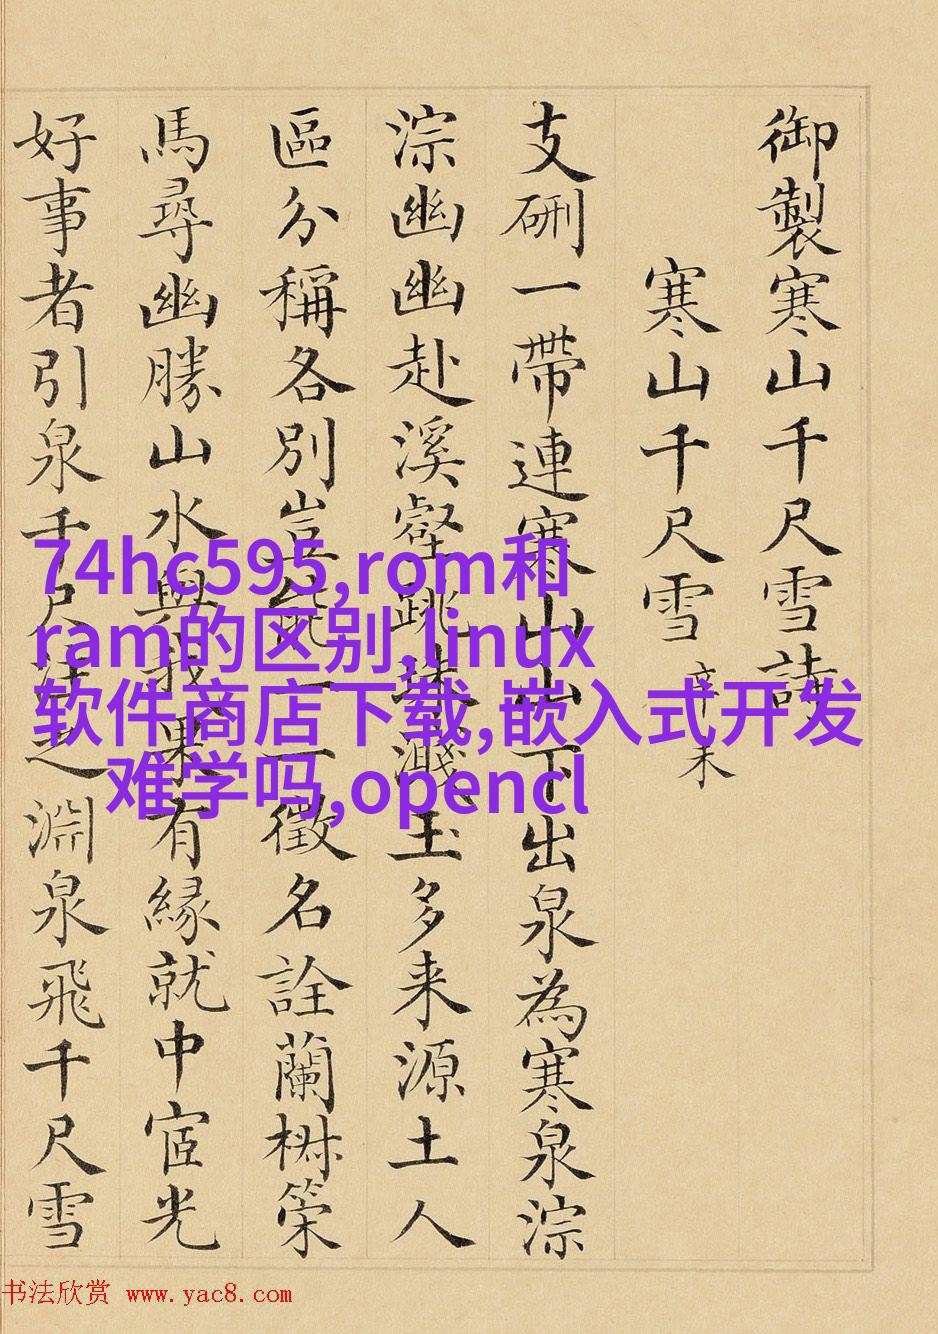 御製寒山千尺雪詩
寒山千尺雪 辛未
支硎一帶連寒山山下出泉為寒泉淙
淙幽幽赴溪壑跳珠濺玉多来源土人
區分稱各別豈能一一徵名詮蘭椒策
馬尋幽勝山水與我果有緣就中宧光
好事者引泉千尺注之淵泉飛千尺雪
74hc595,rom和
ram的区别,linux
软件商店下载,嵌入式开发
难学吗,opencl
书法欣赏 www.yac8.com